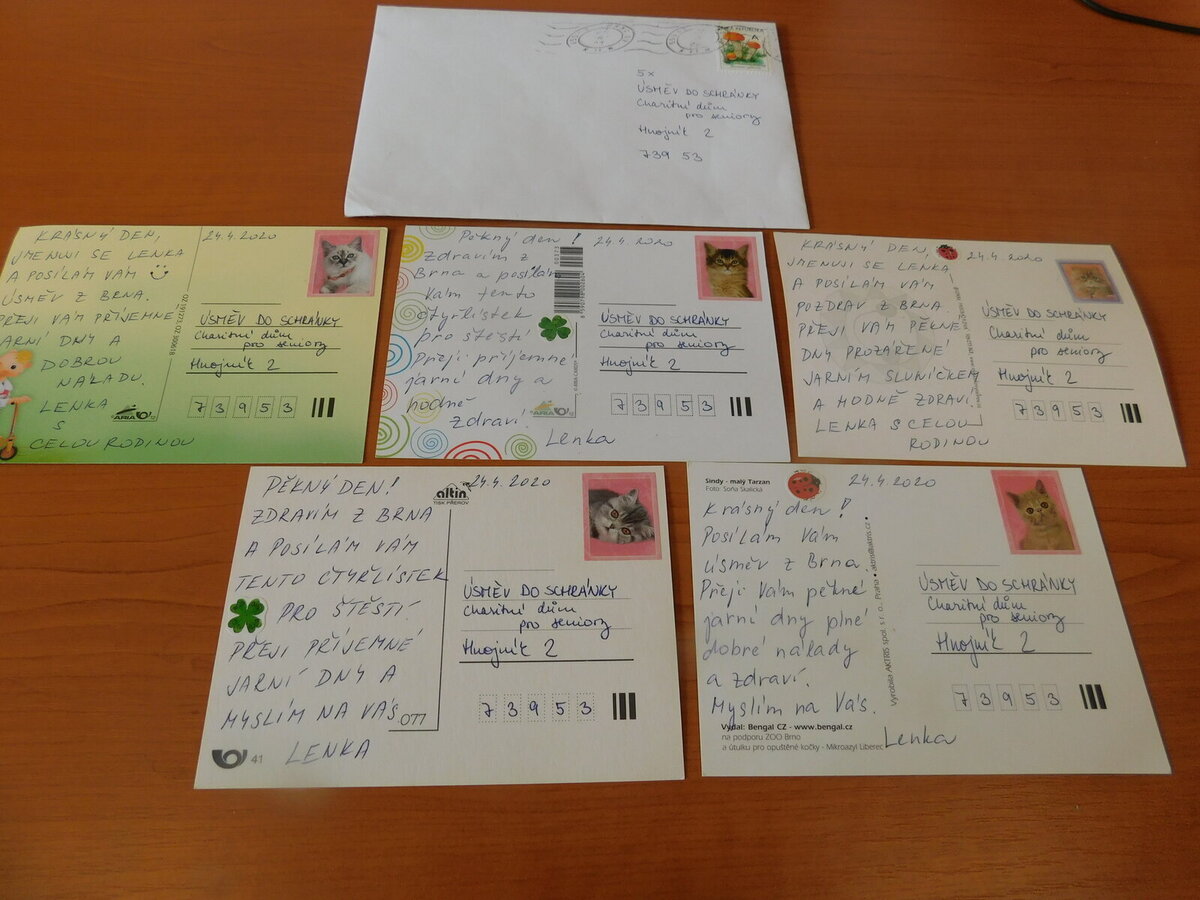 A
5x
ÚSMĚV DO SCHRÁNKY
Charitní dům
pro seniory
Hnojník 2
739 53
KRÁSNÝ DEN,
JMENUJI SE LENKA
A POSÍLÁM VÁM
ÚSMĚV Z BRNA.
PŘEJI VÁM PŘÍJEMNÉ
JARNÍ DNY A
DOBROU
NÁLADU.
LENKA
S
CELOU RODINOU
24.4.2020
ÚSMĚV DO SCHRÁNKY
Charitní dům
pro seniory
Hnojník 2
73953
ARIA
Pěkný den!
Zdravím z
Brna a posílám
Vám tento
čtyřlístek
pro štěstí
Přeji příjemné
jarní dny a
hodně
zdraví.
Lenka
24.4.2020
ÚSMĚV DO SCHRÁNKY
Charitní dům
pro seniory
Hnojník 2
73953
ARIA
KRÁSNÝ DEN,
JMENUJI SE LENKA
A POSÍLÁM VÁM
POZDRAV Z BRNA.
PŘEJI VÁM PĚKNÉ
DNY PROZÁŘENÉ
JARNÍM SLUNÍČKEM
A HODNĚ ZDRAVÍ.
LENKA S CELOU
RODINOU
24.4.2020
ÚSMĚV DO SCHRÁNKY
Charitní dům
pro seniory
Hnojník 2
73953
PĚKNÝ DEN!
ZDRAVÍM Z BRNA
A POSÍLÁM VÁM
TENTO ČTYŘLÍSTEK
PRO ŠTĚSTÍ.
PŘEJI PŘÍJEMNÉ
JARNÍ DNY A
MYSLÍM NA VÁS
LENKA
41
OTI
altin
TISK PŘEROV
24.4.2020
ÚSMĚV DO SCHRÁNKY
Charitní dům
pro seniory
Hnojník 2
73953
Sindy - malý Tarzan
Foto: Soňa Skalická
24.4.2020
Krásný den!
Posílám Vám
úsměv z Brna.
Přeji Vám pěkné
jarní dny plné
dobré nálady
a zdraví.
Myslím na Vás.
Lenka
Vydal: Bengal CZ - www.bengal.cz
na podporu ZOO Brno
a útulku pro opuštěné kočky - Mikroazyl Liberec
Vyrobila AKTRIS spol. s r. o., Praha • aktris@aktris.cz •
ÚSMĚV DO SCHRÁNKY
Charitní dům
pro seniory
Hnojník 2
73953